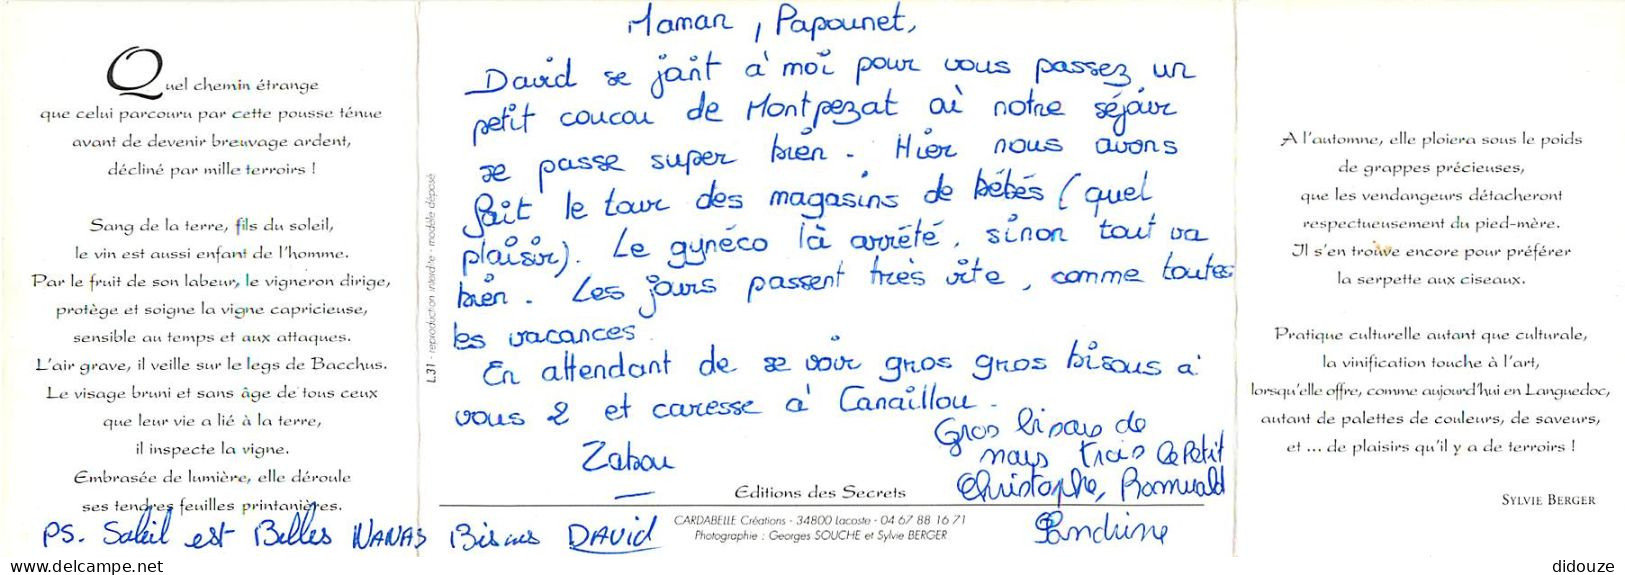 Quel chemin étrange
que celui parcouru par cette pousse ténue
avant de devenir breuvage ardent,
décliné par mille terroirs !
Sang de la terre, fils du soleil,
le vin est aussi enfant de l'homme.
Par le fruit de son labeur, le vigneron dirige,
protège et soigne la vigne capricieuse,
sensible au temps et aux attaques.
L'air grave, il veille sur le legs de Bacchus.
Le visage bruni et sans âge de tous ceux
que leur vie a lié à la terre,
il inspecte la vigne.
Embrasée de lumière, elle déroule
ses tendres feuilles printanières.
L.31 - reproduction interdite - modèle déposé
Maman, Papounet,
David se joint à moi pour vous passez un
petit coucou de Montpezat où notre séjour
se passe super bien. Hier nous avons
fait le tour des magasins de bébés (quel
plaisir). Le gynéco l'à arrêté, sinon tout va
bien. Les jours passent très vite, comme toutes
les vacances.
En attendant de se voir gros gros bisous à
vous 2 et caresse à Canaillou.
Zabou
Gros bisous de
nous trois le petit
Christophe, Romuald
Sandrine
PS. Soleil est Belles NANAS Bisous DAVID
Editions des Secrets
CARDABELLE Créations - 34800 Lacoste - 04 67 88 16 71
Photographie : Georges SOUCHE et Sylvie BERGER
A l'automne, elle ploiera sous le poids
de grappes précieuses,
que les vendangeurs détacheront
respectueusement du pied-mère.
Il s'en trouve encore pour préférer
la serpette aux ciseaux.
Pratique culturelle autant que culturale,
la vinification touche à l'art,
lorsqu'elle offre, comme aujourd'hui en Languedoc,
autant de palettes de couleurs, de saveurs,
et ... de plaisirs qu'il y a de terroirs !
SYLVIE BERGER
delcampe.net
didouze